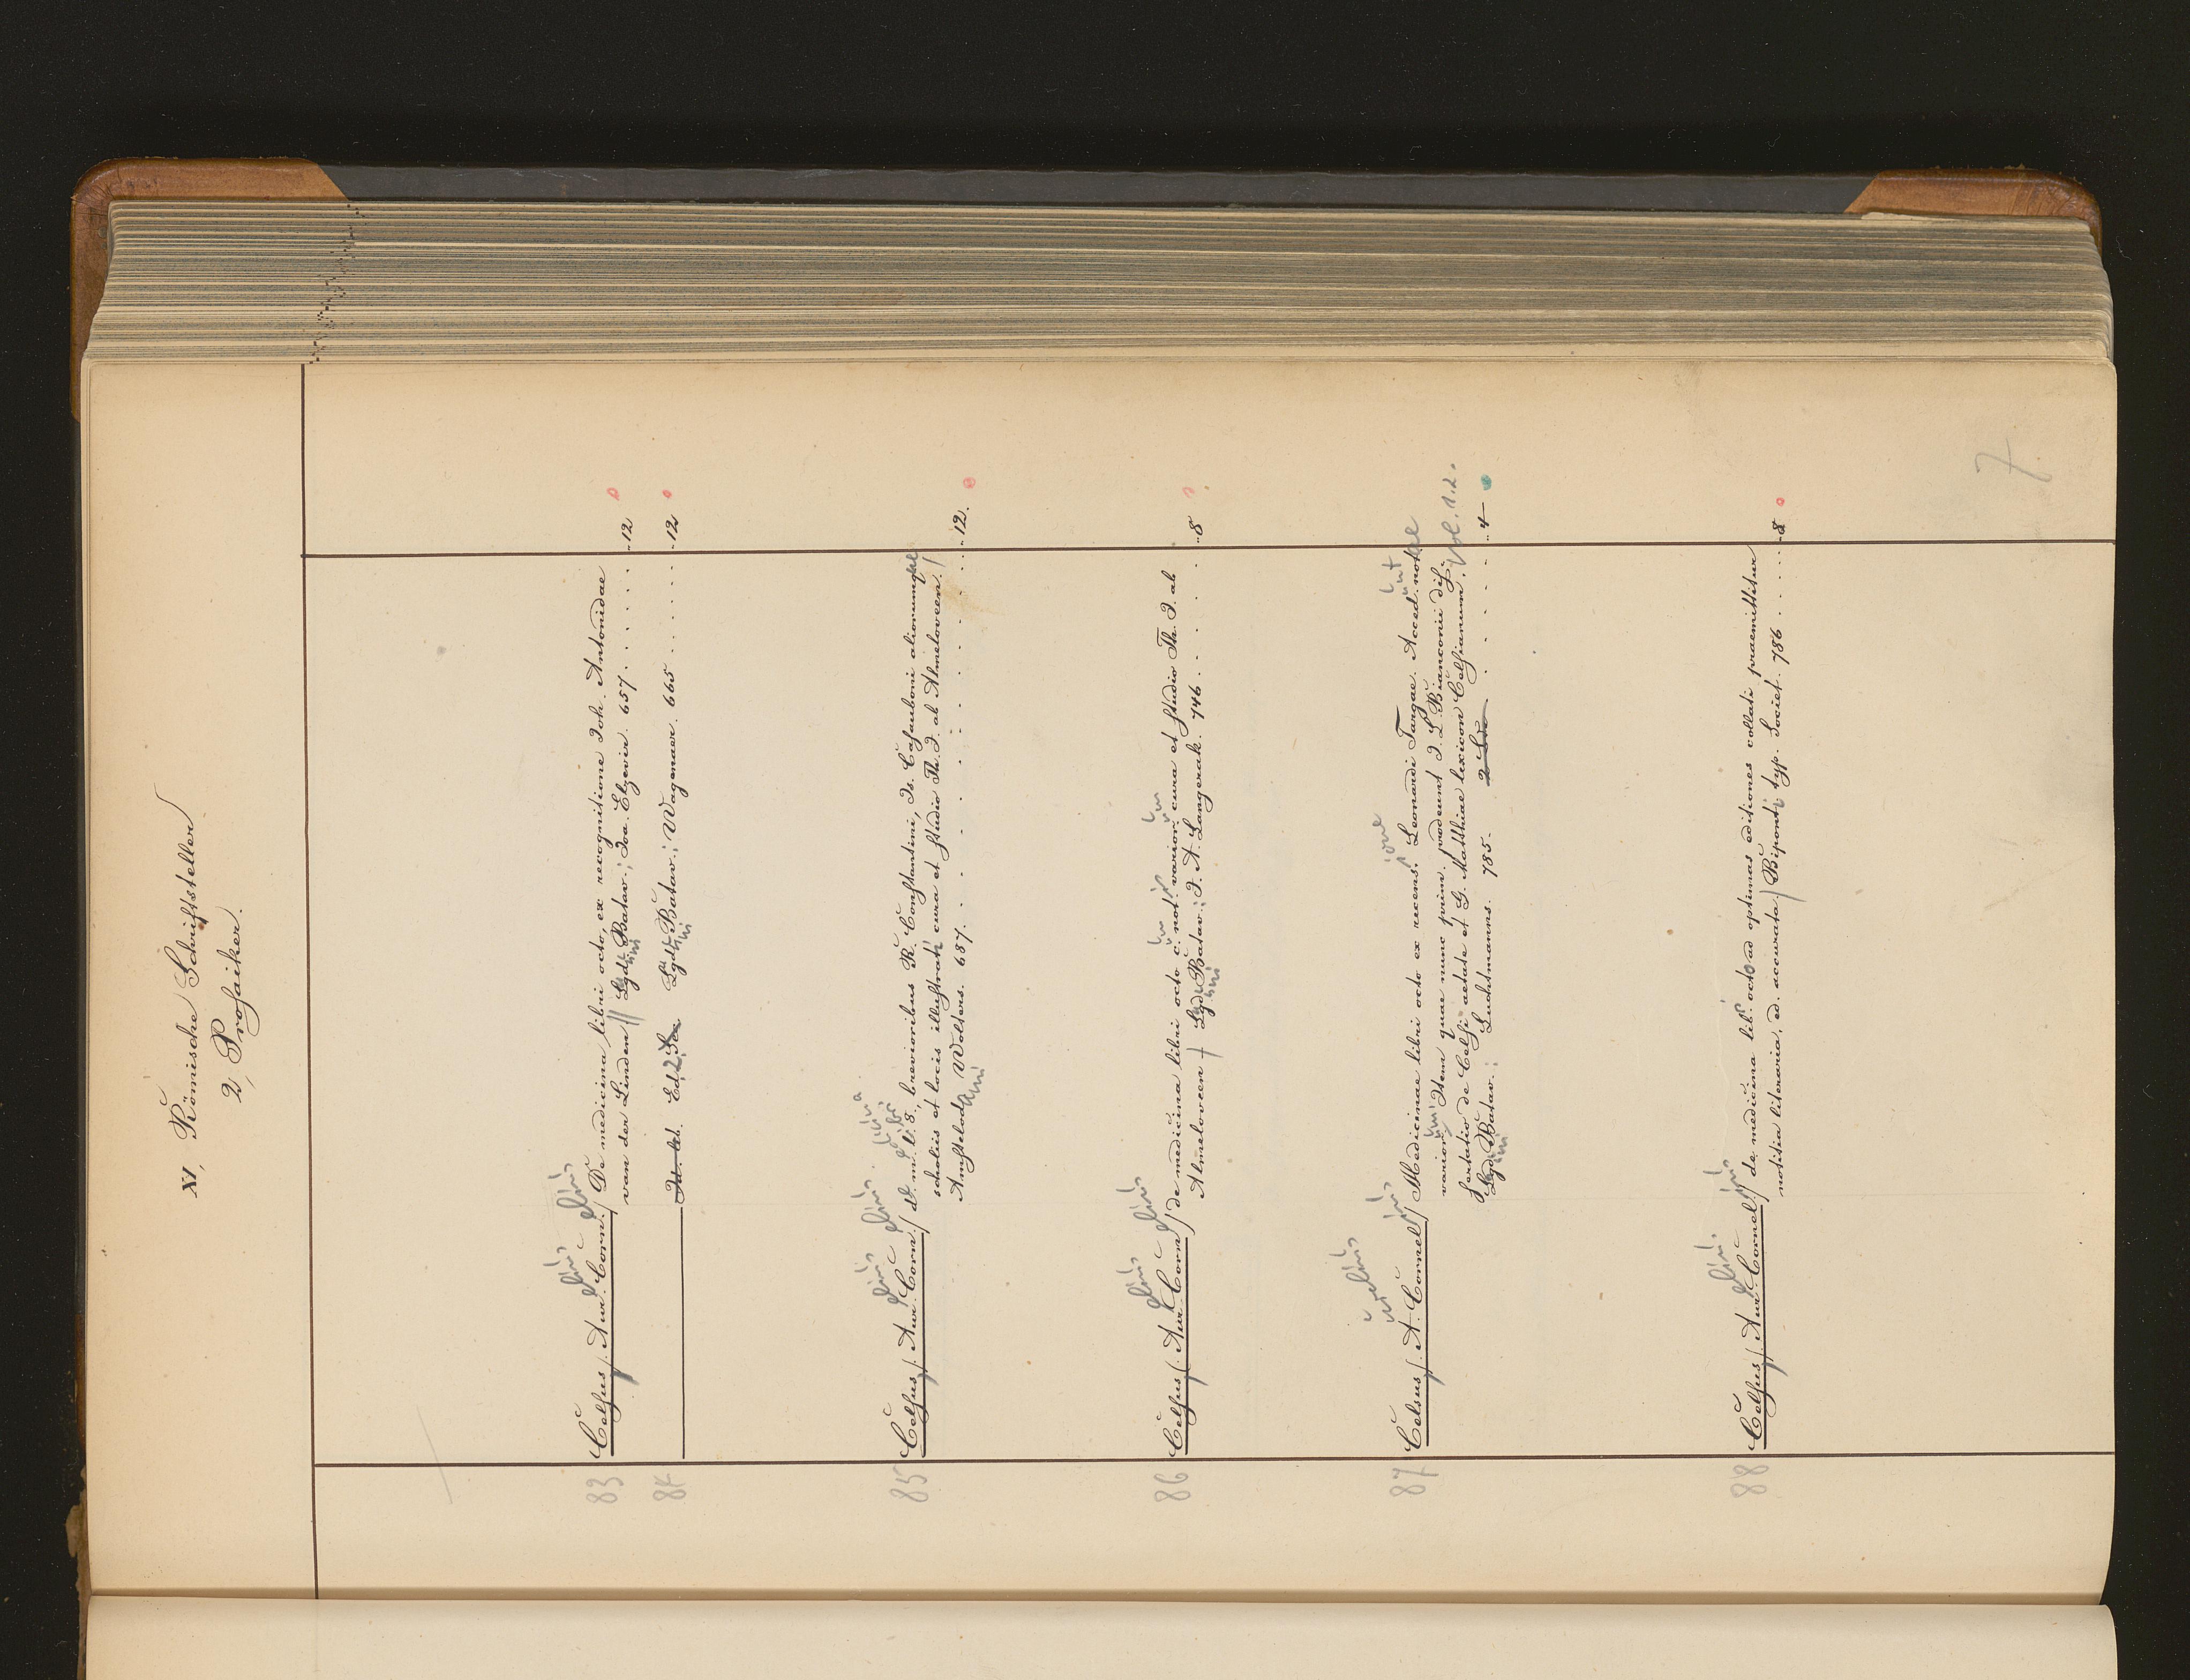 XI, Römische Schriftsteller
2, Prosaiker.
83 Celsus (Aur. Corn.) De medicina libri octo, ex recognitione Joh. Antonidae
van der Linden Lgd. Batav.; Joa. Elzevir. 657. . . . . . . 12
84 Id. lib. Ed. 2. Lgd. Batav.; Wagenaer. 665 . . . . . . 12
85 Celsus (Aur. Corn.) d. m. li. 8, brevioribus R. Constantini, Is. Casauboni aliorumque
scholiis et locis illustrati cura et studio Th. J. ab Almeloveen.
Amstelod. Wolters. 687. . . . . . . . . . . 12.
86 Celsus (Aur. Corn.) de medicina libri octo c. not. varior. cura et studio Th. J. ab
Almeloveen Lgd. Batav.; J. A. Langerak. 746. . . . . 8
87 Celsus (A. Cornel.) Medicinae libri octo ex recens. Leonardi Targae. Acced. notae
varior. Item quae nunc prim. prodeunt J. L. Bianconii dis-
sertatio de Celsi aetate et G. Matthiae lexicon Celsianum. Vol. 1.2.
Lgd. Batav.; Luchtmanns. 785. . . . . . 4
88 Celsus (Aur. Cornel.) de medicina lib. octo ad optimas editiones collati praemittitur
notitia literaria, ed. accurata Biponti typ. Societ. 786 . . . . . 8
7